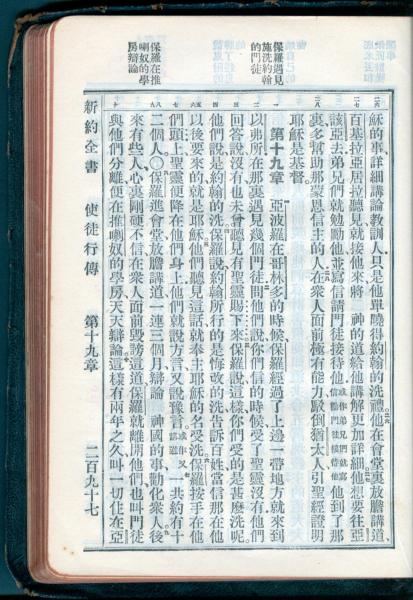 保羅遇見
施洗約翰
的門徒
保羅在推
喇奴的學
房辯論
穌的事、詳細講論教訓人、只是他單曉得約翰的洗禮、他在會堂裏放膽講道、
百基拉亞居拉聽見、就接他來、將　神的道給他講解更加詳細、他想要往亞
該亞去、弟兄們就勉勵他、並寫信請門徒接待他、
他到了那
裏多幫助那蒙恩信主的人、在衆人面前極有能力、駁倒猶太人、引聖經證明
耶穌是基督。
第十九章　亞波羅在哥林多的時候、保羅經過了上邊一帶地方、就來到
以弗所、在那裏遇見幾個門徒、問他們說、你們信的時候、受了聖靈沒有、他們
回答說、沒有、也未曾聽見有聖靈賜下來、保羅說、這樣、你們受的是甚麼洗呢、
他們說、是約翰的洗、保羅說、約翰所行的是悔改的洗、告訴百姓、當信那在他
以後要來的、就是耶穌、他們聽見這話、就奉主耶穌的名受洗、保羅按手在他
們頭上、聖靈便降在他們身上、他們就說方言、又說豫言、
一共約有十
二個人、〇保羅進會堂放膽講道、一連三個月、辯論　神國的事、勸化衆人、後
來有些人、心裏剛硬不信、在衆人面前毀謗這道、保羅就離開他們、也叫門徒
與他們分離、便在推喇奴的學房、天天辯論、這樣有兩年之久、叫一切住在亞
新約全書　使徒行傳　第十九章　二百九十七